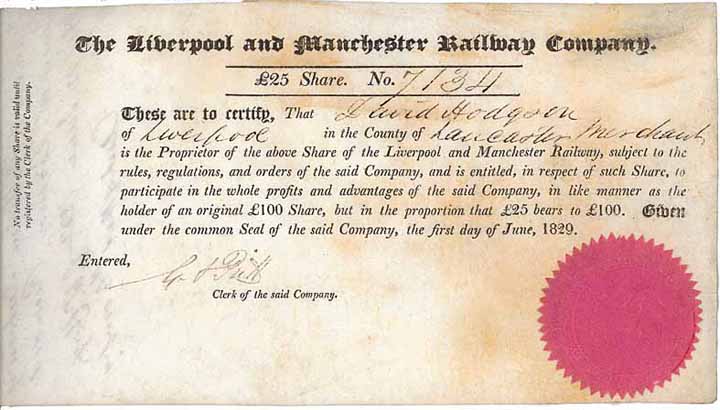 The Liverpool and Manchester Railway Company.
£25 Share. No. 7134
These are to certify, That David Hodgson
of Liverpool in the County of Lancaster Merchant
is the Proprietor of the above Share of the Liverpool and Manchester Railway, subject to the
rules, regulations, and orders of the said Company, and is entitled, in respect of such Share, to
participate in the whole profits and advantages of the said Company, in like manner as the
holder of an original £100 Share, but in the proportion that £25 bears to £100. Given
under the common Seal of the said Company, the first day of June, 1829.
Entered,
Clerk of the said Company.
No transfer of any Share is valid until
registered by the Clerk of the Company.